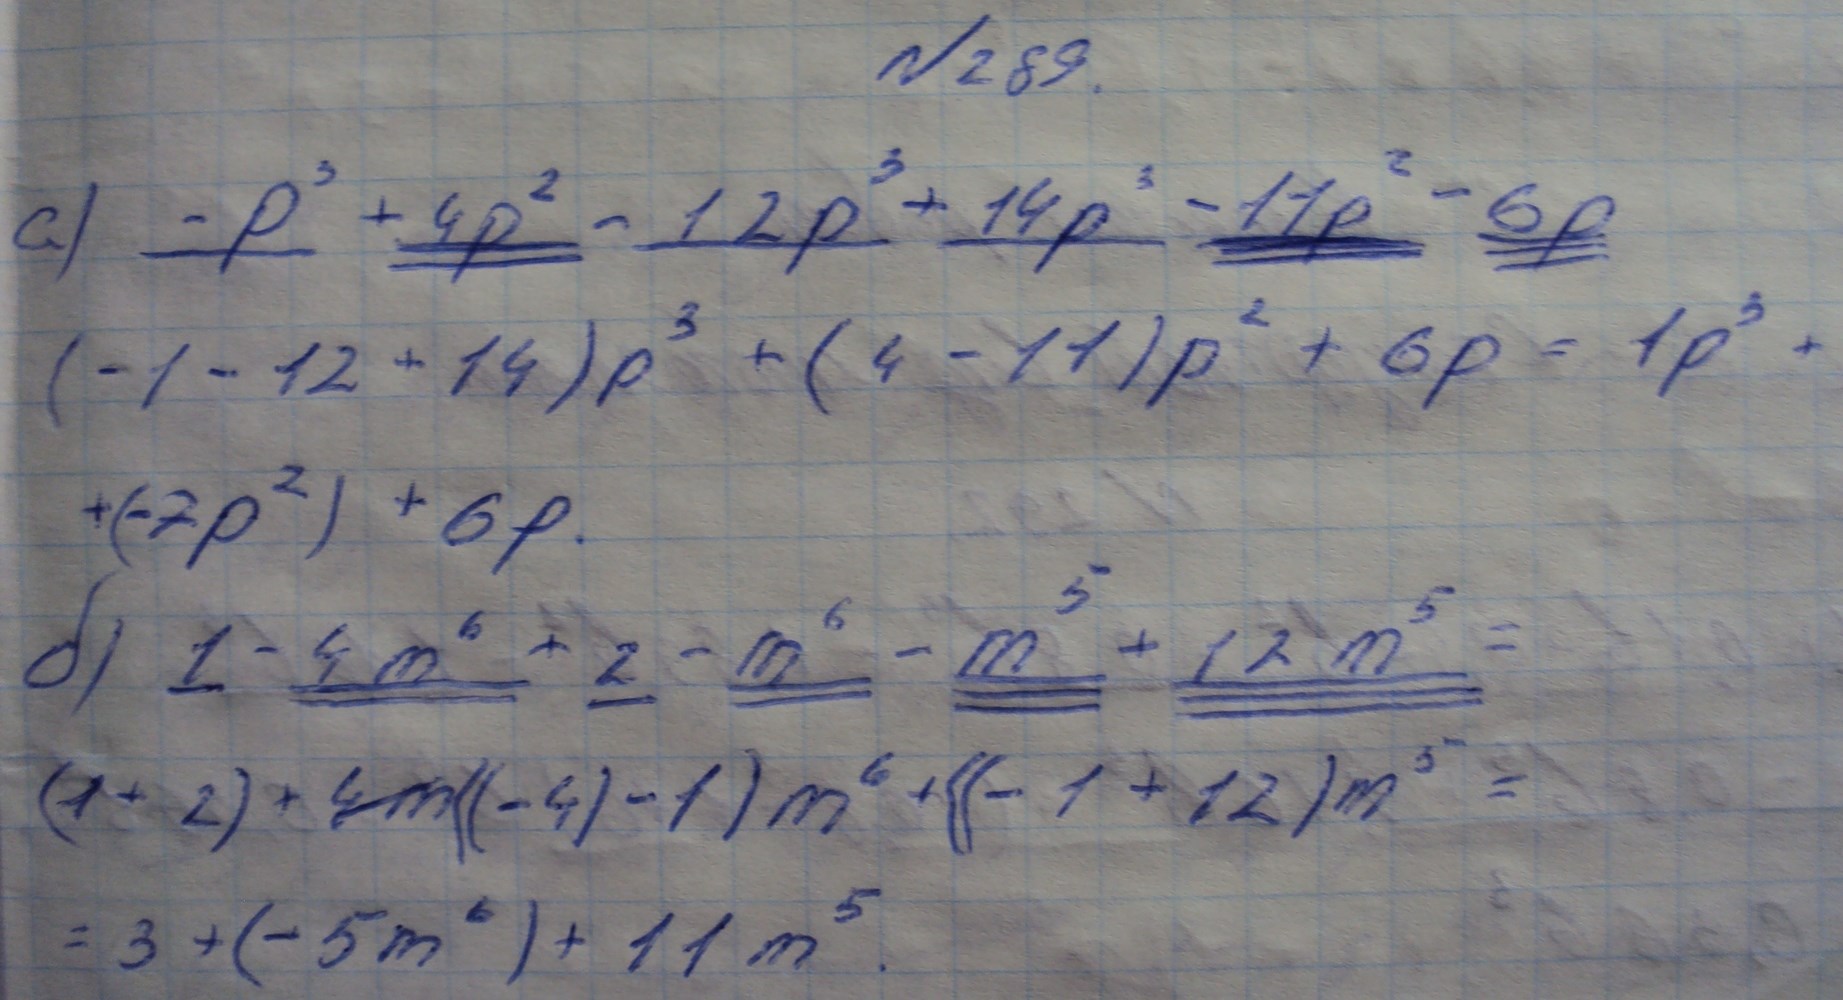 №289.
а) -p³ + 4p² - 12p³ + 14p³ - 11p² - 6p
(-1 - 12 + 14)p³ + (4 - 11)p² + 6p = 1p³ +
+(-7p²) + 6p.
б) 1 - 4m⁶ + 2 - m⁶ - m⁵ + 12m⁵ =
(1 + 2) + ((-4) - 1)m⁶ + ((-1 + 12)m⁵ =
= 3 + (-5m⁶) + 11m⁵.